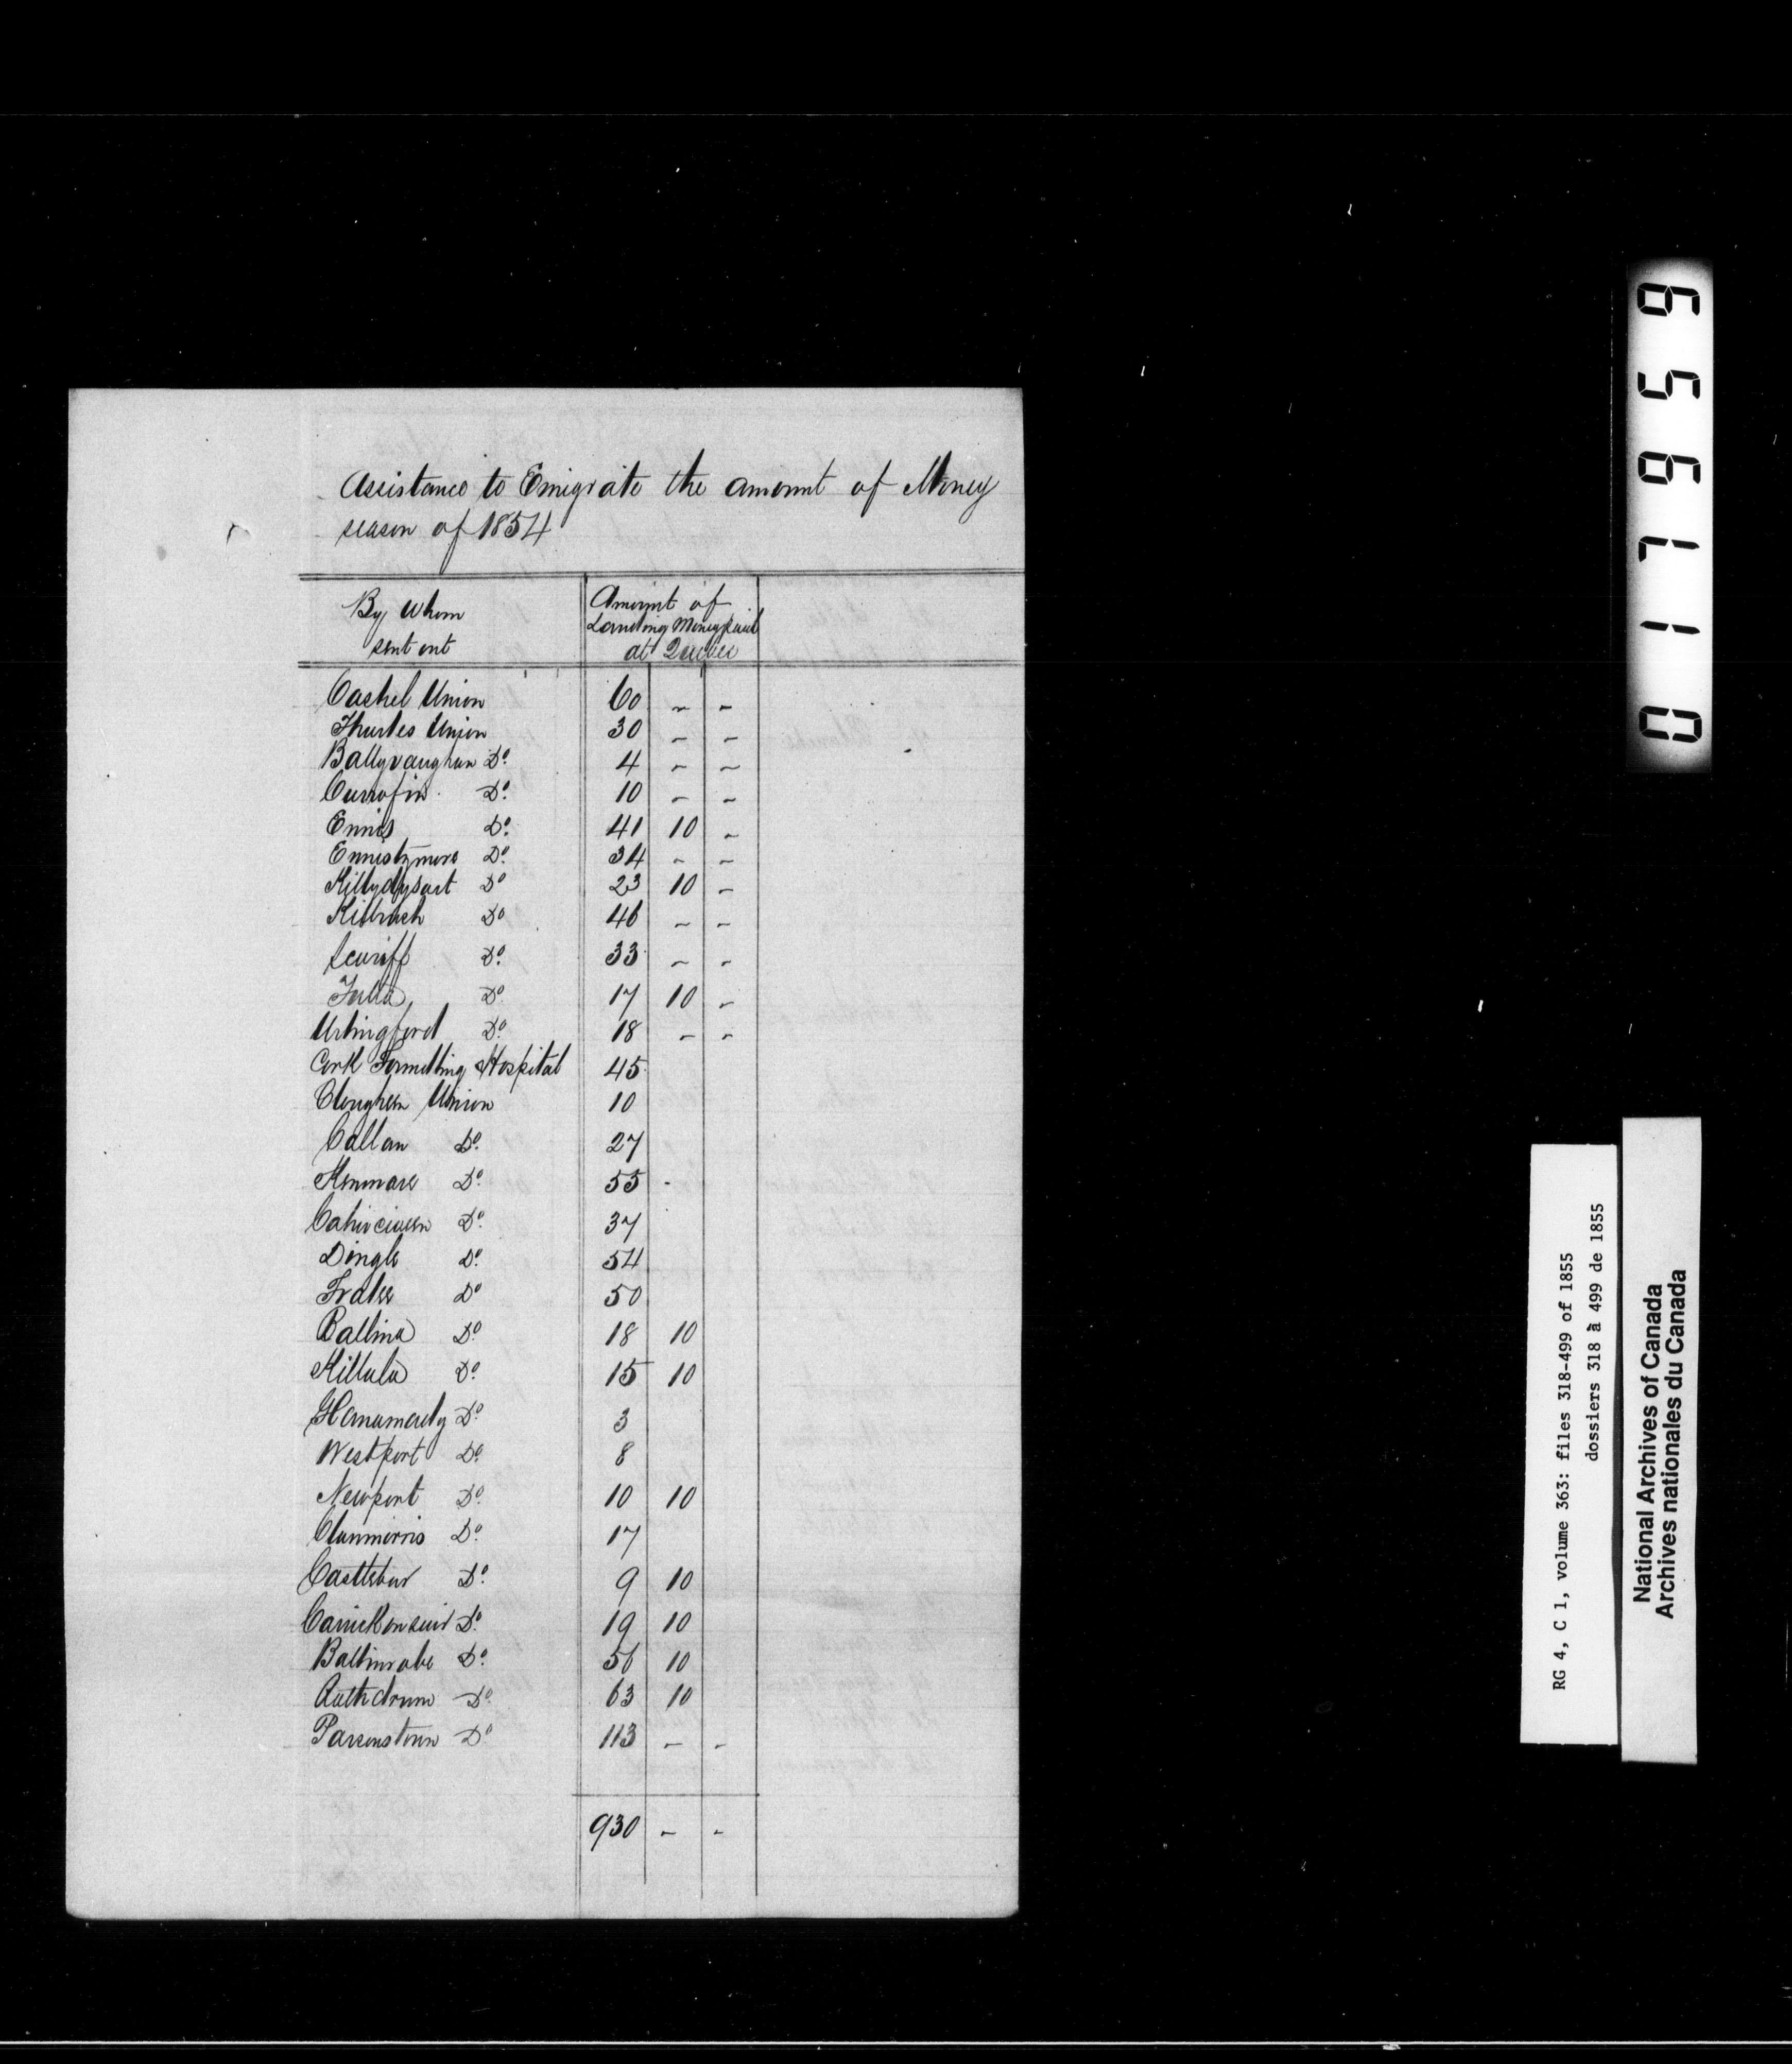 Assistance to Emigrate the amount of Money
season of 1854
By Whom
sent out
Amount of
Landing Money paid
at Quebec
Cashel Union 60 - -
Thurles Union 30 - -
Ballyvaughan Do. 4 - -
Currofin Do. 10 - -
Ennis Do. 41 10 -
Ennistymore Do. 34 - -
Killydysart Do 23 10 -
Kilrush Do 46 - -
Scariff Do. 33 - -
Tulla Do. 17 10 -
Urlingford Do. 18 - -
Cork Foundling Hospital 45
Clogheen Union 10
Callan Do. 27
Kenmare Do. 55 -
Cahirciveen Do. 37
Dingle Do. 54
Tralee Do 50
Ballina Do. 18 10
Killala Do. 15 10
Glanamaddy Do. 3
Westport Do. 8
Newport Do. 10 10
Clanmorris Do. 17
Castlebar Do. 9 10
Carrickonsuir Do. 19 10
Ballinrobe Do. 56 10
Rathdrum Do. 63 10
Parsonstown Do 113 - -
930 - -
011959
RG 4, C 1, volume 363: files 318-499 of 1855
dossiers 318 à 499 de 1855
National Archives of Canada
Archives nationales du Canada